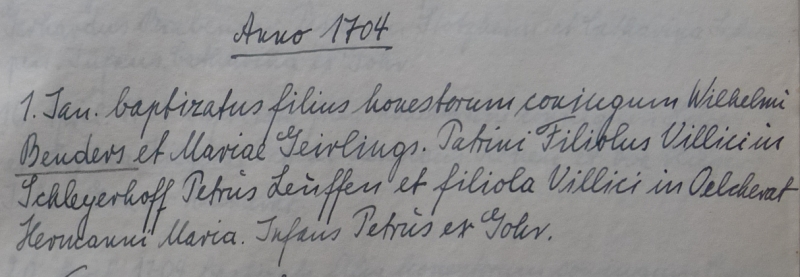 Anno 1704
1. Jan. baptizatus filius honestorum conjugum Wilhelmi
Benders et Mariae Geirlings. Patrini Filiolus Villici in
Schleyerhoff Petrus Leuffen et filiola Villici in Oelcherat
Hermanni Maria. Infans Petrus ex Gohr.